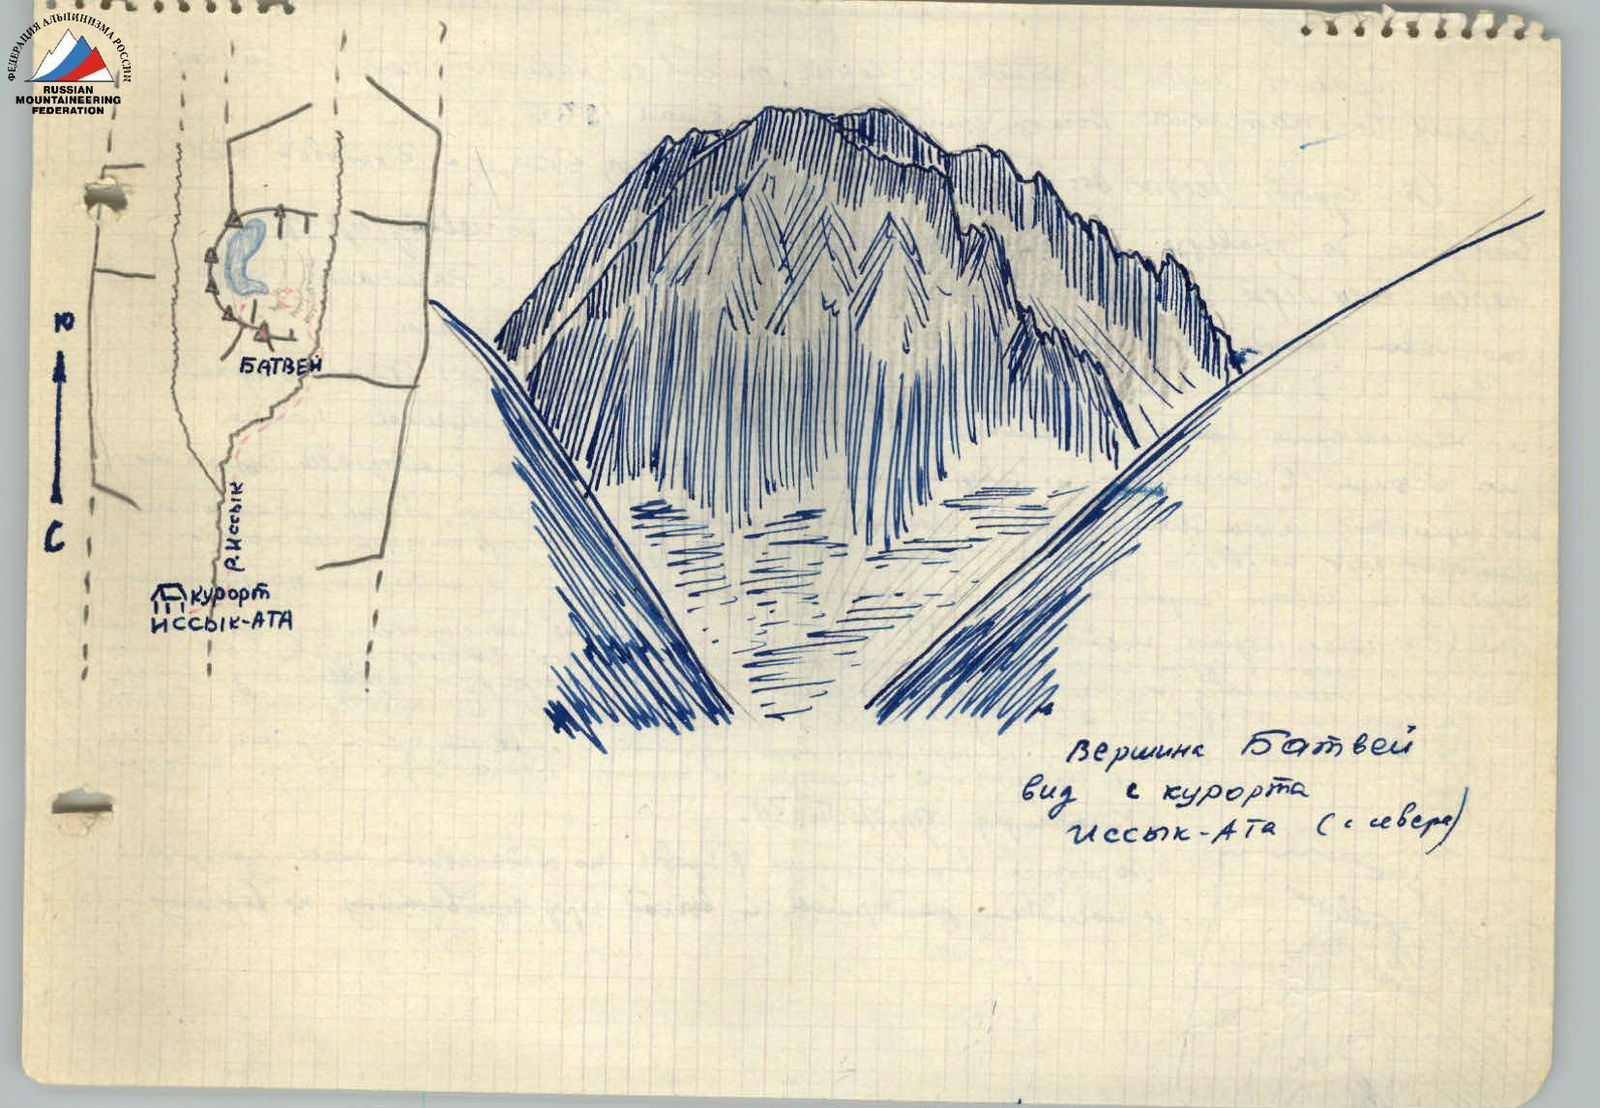 ФЕДЕРАЦИЯ АЛЬПИНИЗМА РОССИИ
RUSSIAN
MOUNTAINEERING
FEDERATION
Ю
БАТВЕЙ
С
Р. Иссык
курорт
ИССЫК-АТА
Вершина Батвей
вид с курорта
Иссык-Ата (с севера)